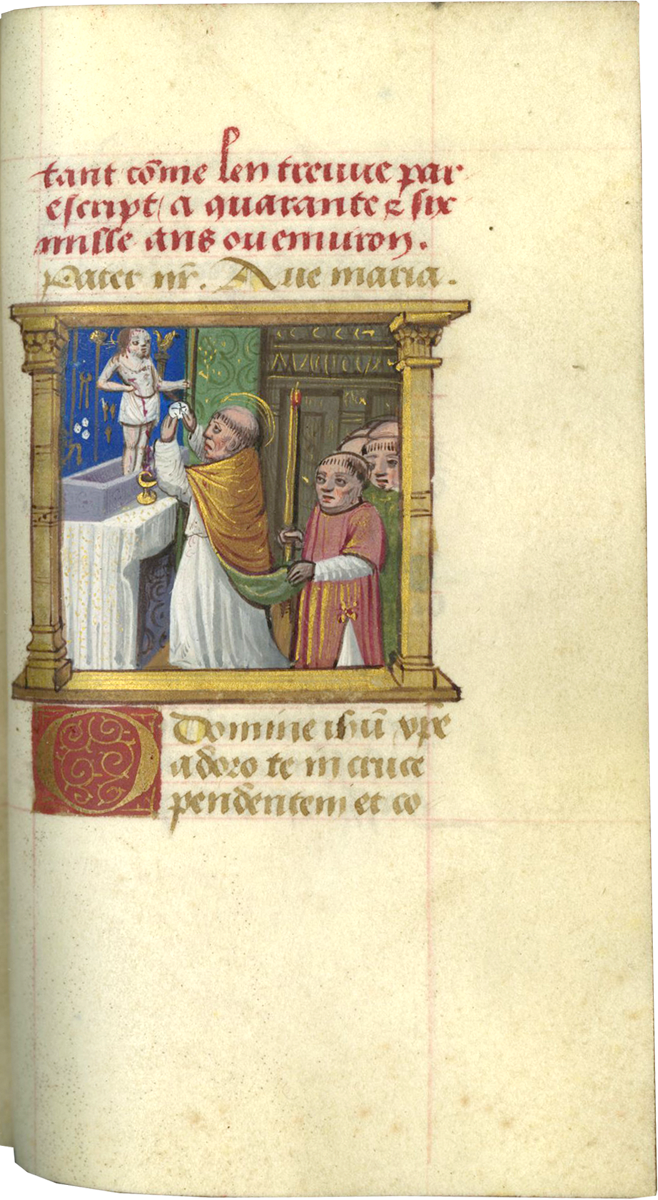 tant cõme len treuue par
escript a quarante & six
mille ans ou enuiron.
Pater nr̃. Aue maria.
O Domine ihũ xp̃e
adoro te in cruce
pendentem et co